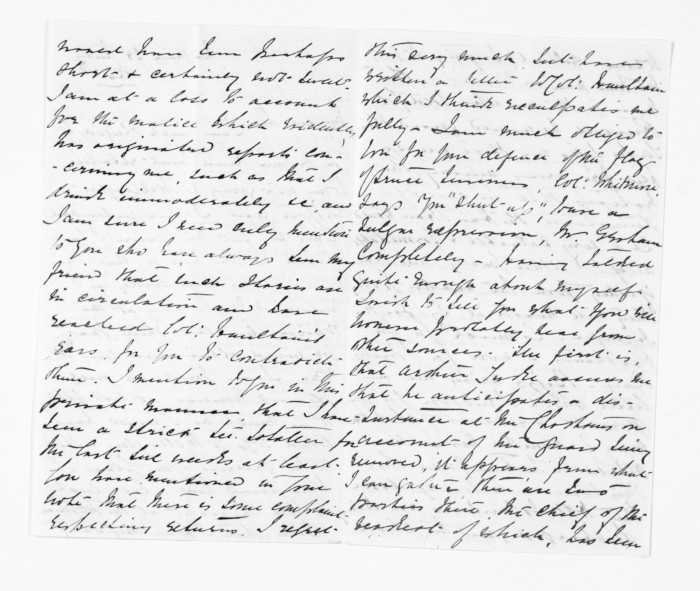 have been perhaps
short & certainly not
I am at a loss to account
for the malice which evidently
has originated reports con-
-cerning me, such as that I
drink immoderately &c, and
I am sure I need only mention
to you who have always been my
friend that such stories are
in circulation and have
reached Col: Haultain's
ears for you to contradict
them. I mention to you in this
private manner that I have
been a strict tee totaller for
the last six weeks at least.
You have mentioned in your
note that there is some complaint
respecting returns. I regret
this very much but have
written a letter to Col: Haultain
which I think exculpates me
fully - I am much obliged to
you for your defence of the flag
of truce business, Col: Whitmore
says you "shut up", to use a
vulgar expression, Mr. Graham
completely - Having talked
quite enough about myself
I wish to tell you what you will
however probably hear from
other sources. The first is,
that assures me
that he anticipates a dis-
-turbance at the Chathams on
account of the guard being
removed, it appears from what
I can gather there are two
parties there the chief of the
of which, has been